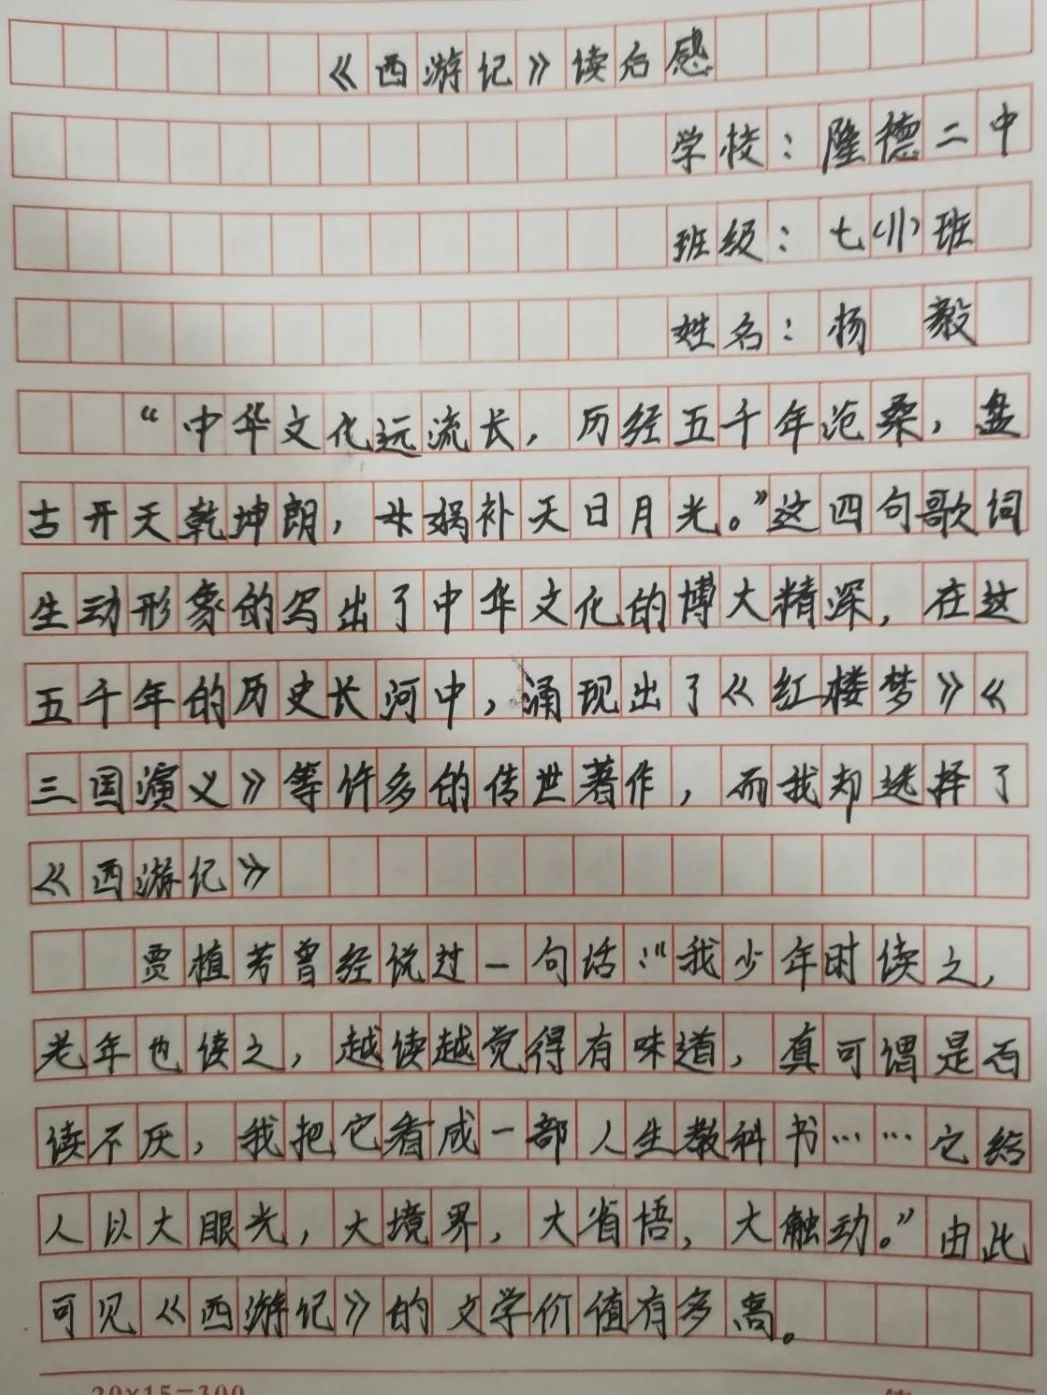 《西游记》读后感
学校：隆德二中
班级：七(11)班
姓名：杨 毅
“中华文化远流长，历经五千年沧桑，盘
古开天乾坤朗，女娲补天日月光。”这四句歌词
生动形象的写出了中华文化的博大精深，在这
五千年的历史长河中，涌现出了《红楼梦》《
三国演义》等许多的传世著作，而我却选择了
《西游记》
贾植芳曾经说过一句话：“我少年时读之，
老年也读之，越读越觉得有味道，真可谓是百
读不厌，我把它看成一部人生教科书……它给
人以大眼光，大境界，大省悟，大触动。”由此
可见《西游记》的文学价值有多高。
20×15=300